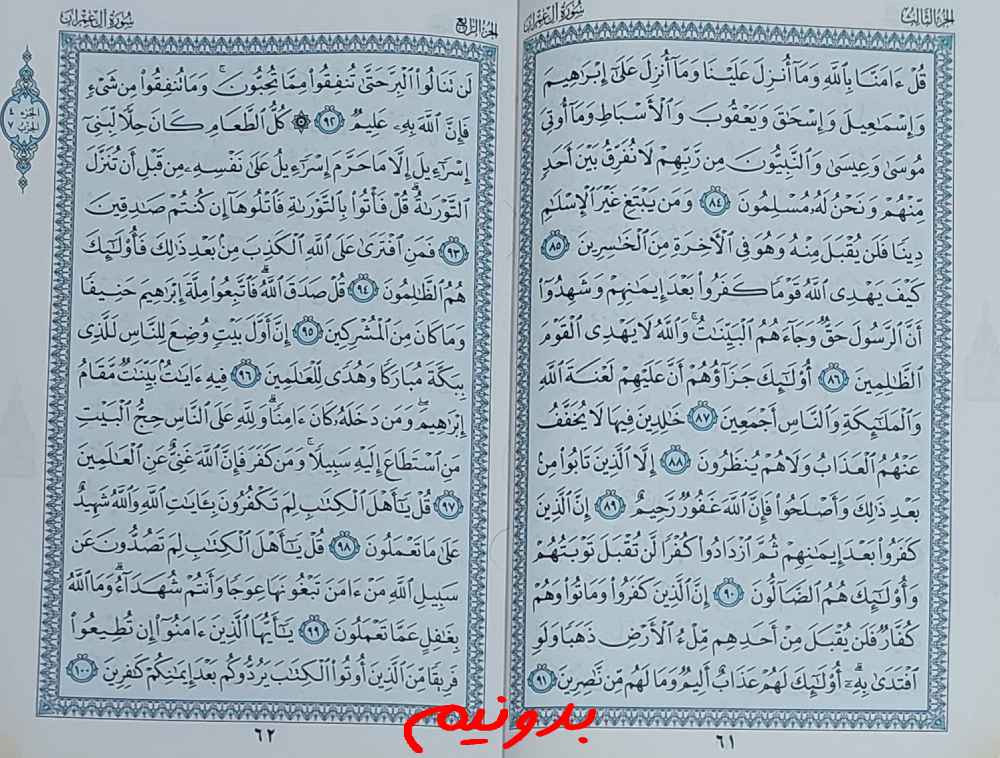 الجزء الثالث
سورة آل عمران
قُلْ ءَامَنَّا بِٱللَّهِ وَمَآ أُنزِلَ عَلَيْنَا وَمَآ أُنزِلَ عَلَىٰٓ إِبْرَٰهِيمَ
وَإِسْمَٰعِيلَ وَإِسْحَٰقَ وَيَعْقُوبَ وَٱلْأَسْبَاطِ وَمَآ أُوتِىَ
مُوسَىٰ وَعِيسَىٰ وَٱلنَّبِيُّونَ مِن رَّبِّهِمْ لَا نُفَرِّقُ بَيْنَ أَحَدٍ
مِّنْهُمْ وَنَحْنُ لَهُۥ مُسْلِمُونَ ٨٤ وَمَن يَبْتَغِ غَيْرَ ٱلْإِسْلَٰمِ
دِينًا فَلَن يُقْبَلَ مِنْهُ وَهُوَ فِى ٱلْءَاخِرَةِ مِنَ ٱلْخَٰسِرِينَ ٨٥
كَيْفَ يَهْدِى ٱللَّهُ قَوْمًا كَفَرُوا۟ بَعْدَ إِيمَٰنِهِمْ وَشَهِدُوٓا۟
أَنَّ ٱلرَّسُولَ حَقٌّ وَجَآءَهُمُ ٱلْبَيِّنَٰتُ ۚ وَٱللَّهُ لَا يَهْدِى ٱلْقَوْمَ
ٱلظَّٰلِمِينَ ٨٦ أُو۟لَٰٓئِكَ جَزَآؤُهُمْ أَنَّ عَلَيْهِمْ لَعْنَةَ ٱللَّهِ
وَٱلْمَلَٰٓئِكَةِ وَٱلنَّاسِ أَجْمَعِينَ ٨٧ خَٰلِدِينَ فِيهَا لَا يُخَفَّفُ
عَنْهُمُ ٱلْعَذَابُ وَلَا هُمْ يُنظَرُونَ ٨٨ إِلَّا ٱلَّذِينَ تَابُوا۟ مِنۢ
بَعْدِ ذَٰلِكَ وَأَصْلَحُوا۟ فَإِنَّ ٱللَّهَ غَفُورٌ رَّحِيمٌ ٨٩ إِنَّ ٱلَّذِينَ
كَفَرُوا۟ بَعْدَ إِيمَٰنِهِمْ ثُمَّ ٱزْدَادُوا۟ كُفْرًا لَّن تُقْبَلَ تَوْبَتُهُمْ
وَأُو۟لَٰٓئِكَ هُمُ ٱلضَّآلُّونَ ٩٠ إِنَّ ٱلَّذِينَ كَفَرُوا۟ وَمَاتُوا۟ وَهُمْ
كُفَّارٌ فَلَن يُقْبَلَ مِنْ أَحَدِهِم مِّلْءُ ٱلْأَرْضِ ذَهَبًا وَلَوِ
ٱفْتَدَىٰ بِهِۦٓ ۗ أُو۟لَٰٓئِكَ لَهُمْ عَذَابٌ أَلِيمٌ وَمَا لَهُم مِّن نَّٰصِرِينَ ٩١
٦١
الجزء الرابع
سورة آل عمران
لَن تَنَالُوا۟ ٱلْبِرَّ حَتَّىٰ تُنفِقُوا۟ مِمَّا تُحِبُّونَ ۚ وَمَا تُنفِقُوا۟ مِن شَىْءٍ
فَإِنَّ ٱللَّهَ بِهِۦ عَلِيمٌ ٩٢ ۞ كُلُّ ٱلطَّعَامِ كَانَ حِلًّا لِّبَنِىٓ
إِسْرَٰٓءِيلَ إِلَّا مَا حَرَّمَ إِسْرَٰٓءِيلُ عَلَىٰ نَفْسِهِۦ مِن قَبْلِ أَن تُنَزَّلَ
ٱلتَّوْرَىٰةُ ۗ قُلْ فَأْتُوا۟ بِٱلتَّوْرَىٰةِ فَٱتْلُوهَآ إِن كُنتُمْ صَٰدِقِينَ
٩٣ فَمَنِ ٱفْتَرَىٰ عَلَى ٱللَّهِ ٱلْكَذِبَ مِنۢ بَعْدِ ذَٰلِكَ فَأُو۟لَٰٓئِكَ
هُمُ ٱلظَّٰلِمُونَ ٩٤ قُلْ صَدَقَ ٱللَّهُ ۗ فَٱتَّبِعُوا۟ مِلَّةَ إِبْرَٰهِيمَ حَنِيفًا
وَمَا كَانَ مِنَ ٱلْمُشْرِكِينَ ٩٥ إِنَّ أَوَّلَ بَيْتٍ وُضِعَ لِلنَّاسِ لَلَّذِى
بِبَكَّةَ مُبَارَكًا وَهُدًى لِّلْعَٰلَمِينَ ٩٦ فِيهِ ءَايَٰتٌۢ بَيِّنَٰتٌ مَّقَامُ
إِبْرَٰهِيمَ ۖ وَمَن دَخَلَهُۥ كَانَ ءَامِنًا ۗ وَلِلَّهِ عَلَى ٱلنَّاسِ حِجُّ ٱلْبَيْتِ
مَنِ ٱسْتَطَاعَ إِلَيْهِ سَبِيلًا ۚ وَمَن كَفَرَ فَإِنَّ ٱللَّهَ غَنِىٌّ عَنِ ٱلْعَٰلَمِينَ
٩٧ قُلْ يَٰٓأَهْلَ ٱلْكِتَٰبِ لِمَ تَكْفُرُونَ بِـَٔايَٰتِ ٱللَّهِ وَٱللَّهُ شَهِيدٌ
عَلَىٰ مَا تَعْمَلُونَ ٩٨ قُلْ يَٰٓأَهْلَ ٱلْكِتَٰبِ لِمَ تَصُدُّونَ عَن
سَبِيلِ ٱللَّهِ مَنْ ءَامَنَ تَبْغُونَهَا عِوَجًا وَأَنتُمْ شُهَدَآءُ ۗ وَمَا ٱللَّهُ
بِغَٰفِلٍ عَمَّا تَعْمَلُونَ ٩٩ يَٰٓأَيُّهَا ٱلَّذِينَ ءَامَنُوٓا۟ إِن تُطِيعُوا۟
فَرِيقًا مِّنَ ٱلَّذِينَ أُوتُوا۟ ٱلْكِتَٰبَ يَرُدُّوكُم بَعْدَ إِيمَٰنِكُمْ كَٰفِرِينَ ١٠٠
٦٢
الجزء ٤
الحزب ٧
بدونیم